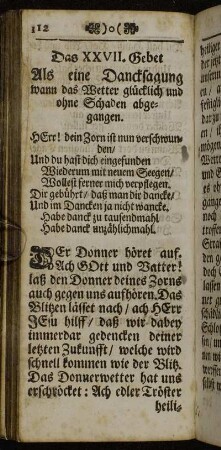 112 )o(
Das XXVII. Gebet
Als eine Dancksagung
wann das Wetter glücklich und
ohne Schaden abge-
gangen.
HErr! dein Zorn ist nun verschwun-
den/
Und du hast dich eingefunden
Wiederum mit neuem Seegen/
Wollest ferner mich verpflegen.
Dir gebührt/ daß man dir dancke/
Und im Dancken ja nicht wancke,
Habe danck zu tausendmahl
Habe danck unzählichmahl.
DEr Donner höret auf.
Ach GOtt und Vatter!
laß den Donner deines Zorns
auch gegen uns aufhören. Das
Blitzen lässet nach/ ach HErr
JEsu hilff/ daß wir dabey
immerdar gedencken deiner
letzten Zukunfft/ welche wird
schnell kommen wie der Blitz.
Das Donnerwetter hat uns
erschröcket: Ach edler Tröster
heili-